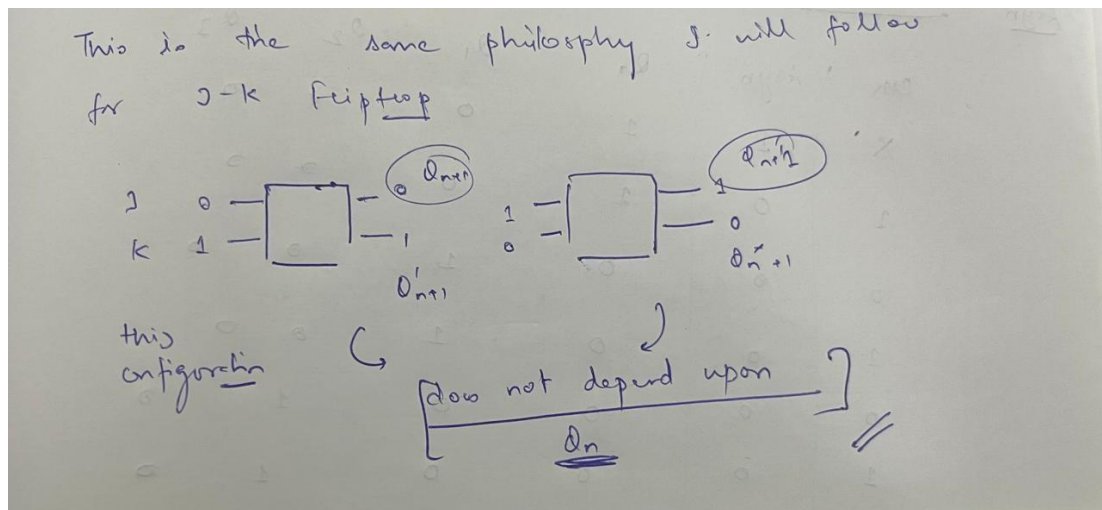 This is the same philosphy I will follow
for J-K Flipflop
J 0 0 Qn+1 1 1 Qn+1
K 1 1 Q'n+1 0 0 Q'n+1
this
configuration
[does not depend upon]
Qn